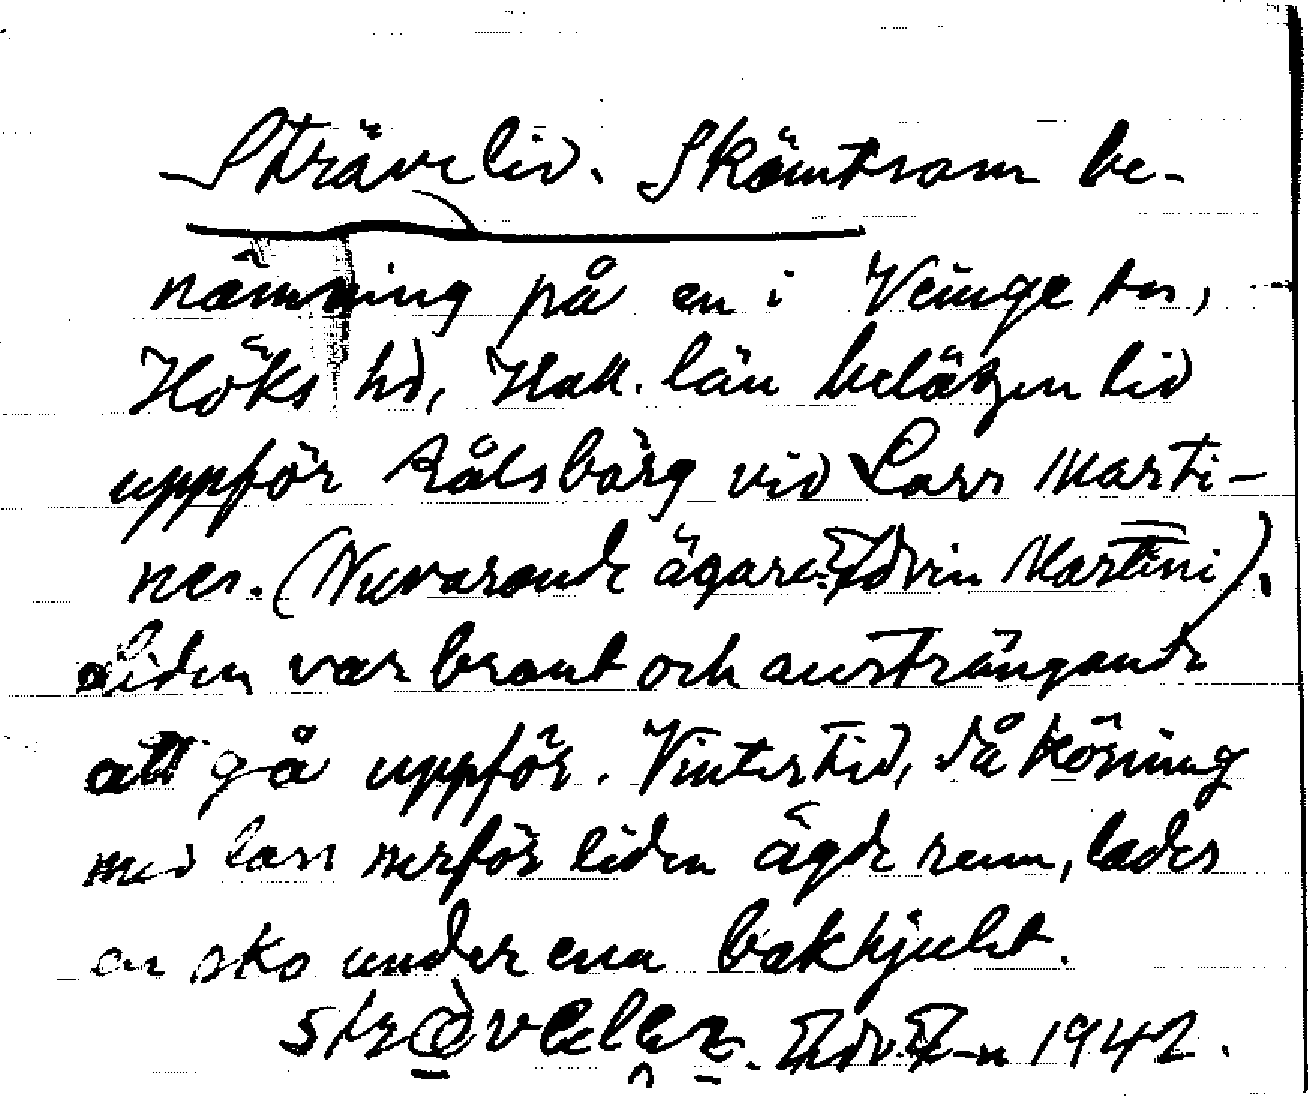 Sträveliv. Skämtsam be-
nämning på en i Veinge sn,
Höks hd, Hall. län belägen lid
uppför Rålsbärg vid Lars Marti-
nes. (Nuvarande ägare: Edvin Martini).
Liden var brant och ansträngande
att gå uppför. Vintertid, då körning
med lass nerför liden ägde rum, lades
en sko under ena bakhjulet.
1942.